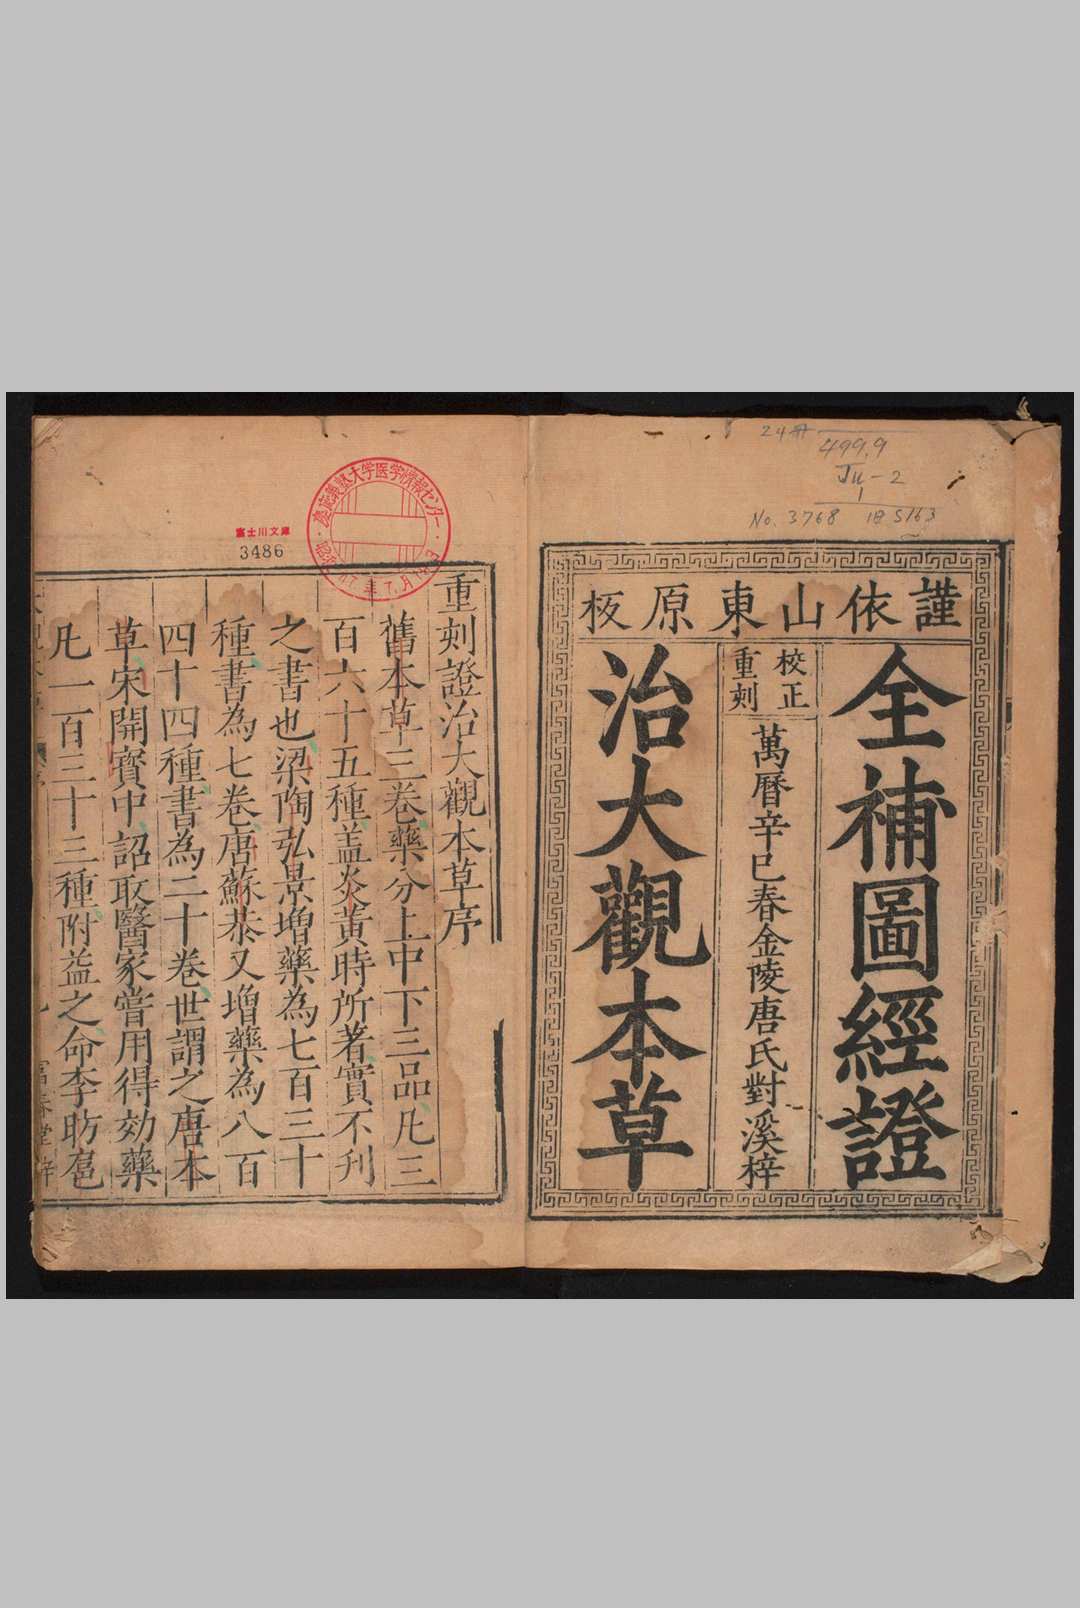 24冊
499.9
Ju-2
1
No. 3768 旧S163
謹依山東原板
全補圖經證
校正
重刻
萬曆辛巳春金陵唐氏對溪梓
治大觀本草
富士川文庫
3486
慶應義塾大学医学情報センター
重刻證治大觀本草序
舊本草三卷藥分上中下三品凡三
百六十五種盖炎黃時所著實不刋
之書也梁陶弘景增藥為七百三十
種書為七卷唐蘇恭又增藥為八百
四十四種書為二十卷世謂之唐本
草宋開寳中詔取醫家嘗用得効藥
凡一百三十三種附益之命李昉扈
富春堂梓